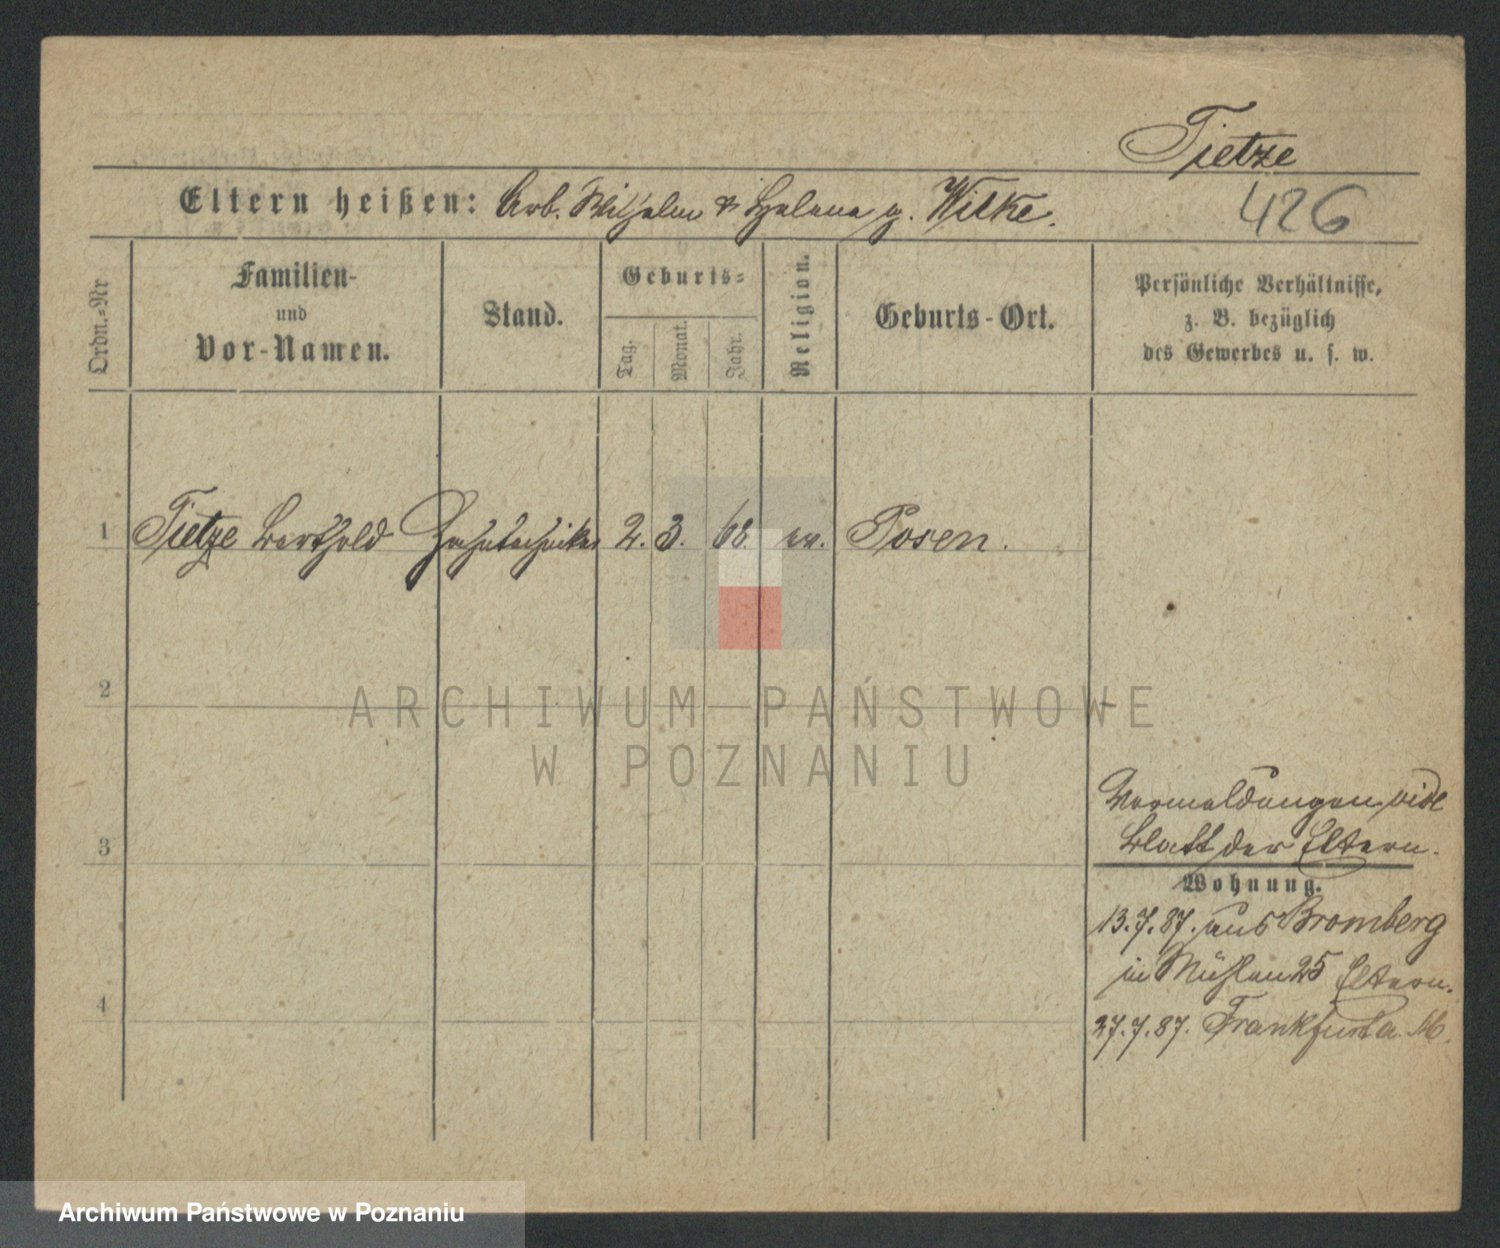 Tietze
Eltern heißen: Arb. Wilhelm & Helena g. Wilke.
426
Ordn.=Nr
Familien-
und
Vor-Namen.
Stand.
Geburts=
Tag.
Monat.
Jahr.
Religion.
Geburts-Ort.
Persönliche Verhältnisse,
z. B. bezüglich
des Gewerbes u. s. w.
1 Tietze Berthold Zahntechniker 2. 3. 68. ev. Posen.
2
3
4
Vormeldungen vide
Blatt der Eltern.
Wohnung.
13.7.87. aus Bromberg
in Mühlen 25 Eltern.
27.7.87. Frankfurt a. M.
ARCHIWUM PAŃSTWOWE
W POZNANIU
Archiwum Państwowe w Poznaniu